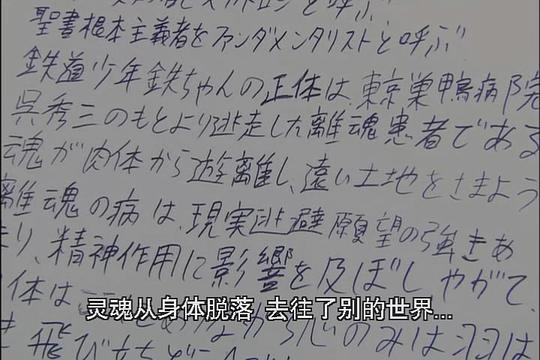 と呼ぶ
聖書根本主義者をファンダメンタリストと呼ぶ
鉄道少年鉄ちゃんの正体は、東京巣鴨病院
呉秀三のもとより逃走した離魂患者である
魂が肉体から遊離し、遠い土地をさまよう
離魂の病は、現実逃避願望の強きあ
り、精神作用に影響を及ぼしやがて、
体は
灵魂从身体脱落 去往了别的世界...
心のみは羽
飛び立ち